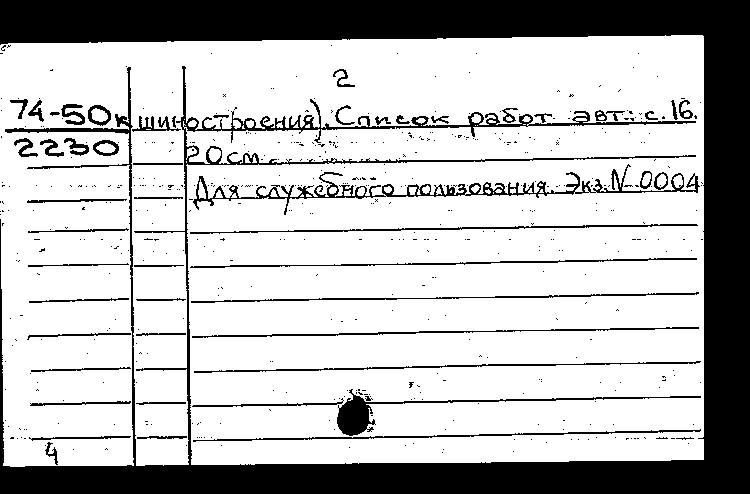 2
74-50к шиностроения). Список работ авт.: с.16.
2230 20см.
Для служебного пользования. Экз. N 0004
4